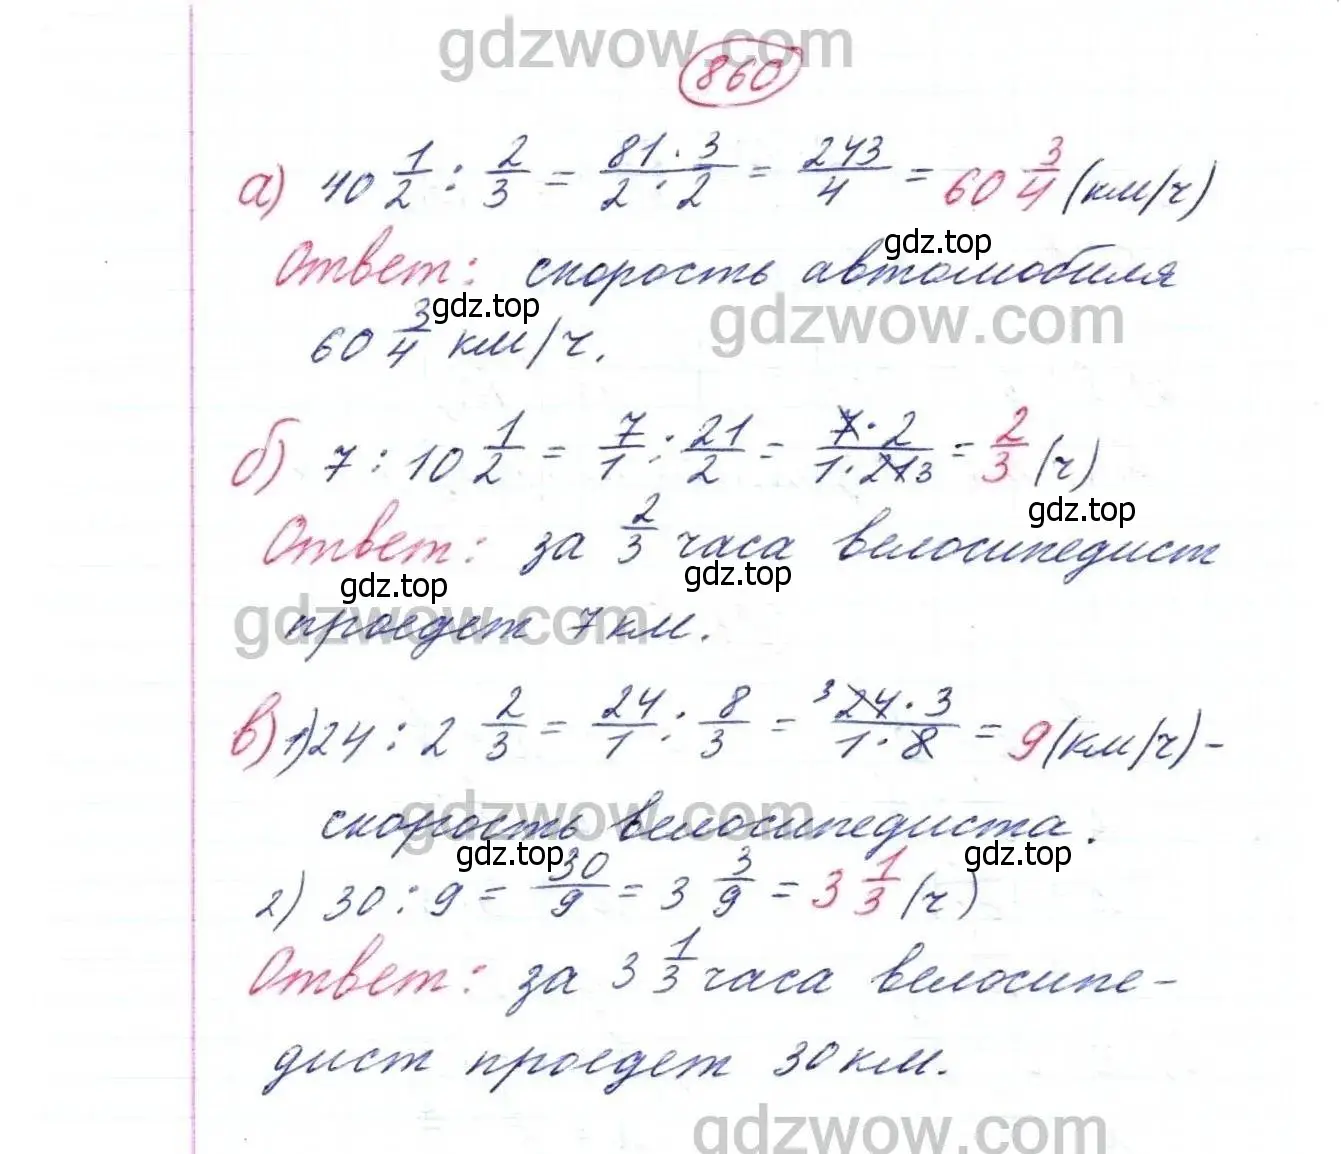 gdzwow.com
860
а) 40 1/2 : 2/3 = 81 · 3/2 · 2 = 243/4 = 60 3/4 (км/ч)
gdz.top
Ответ: скорость автомобиля
gdz.top
gdzwow.com
60 3/4 км/ч.
б) 7 : 10 1/2 = 7/1 : 21/2 = 7 · 2/1 · 21 3 = 2/3 (ч)
gdz.top
Ответ: за 2/3 часа велосипедист
gdz.top gdz.top
gdzwow.com
проедет 7 км.
в) 1) 24 : 2 2/3 = 24/1 : 8/3 = 3 24 · 3/1 · 8 = 9 (км/ч) -
gdzwow.com
скорость велосипедиста.
gdz.top gdz.top
2) 30 : 9 = 30/9 = 3 3/9 = 3 1/3 (ч)
Ответ: за 3 1/3 часа велосипе-
дист проедет 30 км.
gdzwow.com